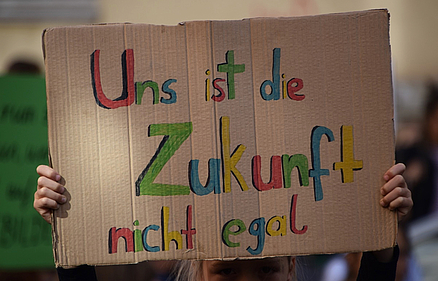 Uns ist die
Zukunft
nicht egal